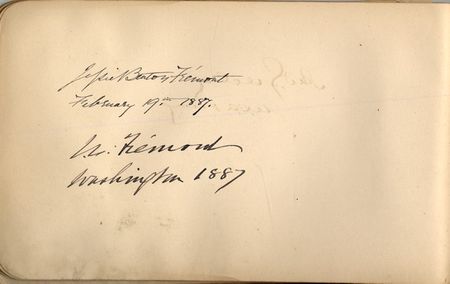 Jessie Benton Frémont
February 19th 1887.
J.C. Frémont
Washington 1887